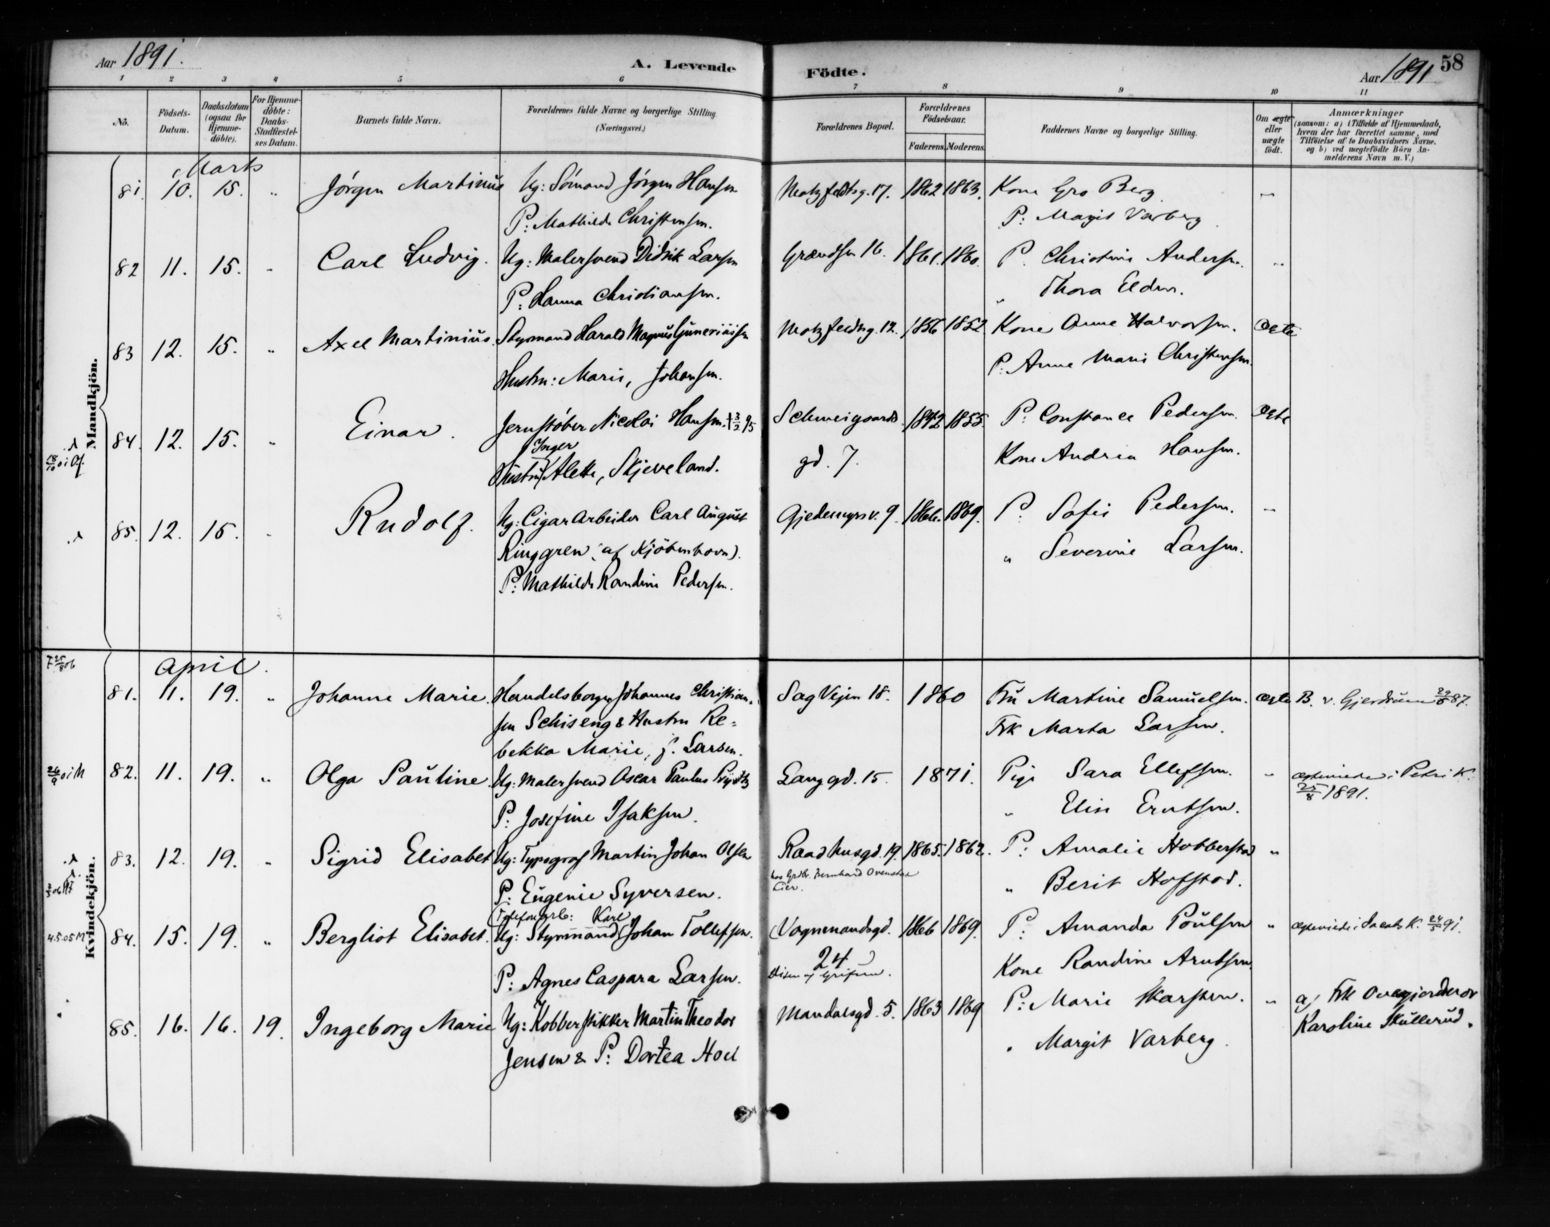 Aar 1891.
A. Levende
Födte.
Aar 1891
58
1 2 3 4 5 6 7 8 9 10 11
No.
Födsels-
Datum.
Daabsdatum
(ogsaa for
Hjemme-
döbte).
For Hjemme-
döbte:
Daabs-
Stadfæstel-
ses Datum.
Barnets fulde Navn.
Forældrenes fulde Navne og borgerlige Stilling.
(Næringsvei.)
Forældrenes Bopæl.
Forældrenes
Födselsaar.
Faderens. Moderens.
Faddernes Navne og borgerlige Stilling.
Om ægte
eller
uægte
födt.
Anmærkninger
(saasom: a) i Tilfælde af Hjemmedaab,
hvem der har forrettet samme, med
Tilföielse af to Daabsvidners Navne,
og b) ved uægtefödte Börn An-
melderens Navn m. V.)
Mandkjön.
Marts
81. 10. 15. " Jørgen Martinus Ug: Sømand Jørgen Hansen Motzfeldtsg. 17. 1862 1863. Kone Gro Berg "
P: Mathilde Christensen. P: Magit Varberg
82 11. 15. " Carl Ludvig. Ug: Malersvend Didrik Larsen Grændsen 16. 1861. 1860. P. Christine Andersen. "
P: Hanna Christiansen. " Thora Elden.
83 12. 15. " Axel Martinius. Styrmand Harald Magnus Motzfeldtsg. 12. 1856 1852 Kone Anne Halvorsen. ægte
Hustru: Marie, Johansen. P. Anne Marie Christensen.
84. 12. 15. " Einar. Jernstøber Nicolai Hansen. Schweigaards 1842 1855. P: Constance Pedersen. ægte
Inger
Hustru Alette, Skjeveland. gd. 7. Kone Andrea Hansen.
85. 12. 15. " Rudolf. Ug: Cigararbeider Carl August Gjedemyrsv. 9. 1866. 1869. P. Sofie Pedersen. "
Ringgren (af Kjöbenhavn). " Severine Larsen.
P: Mathilde Randine Pedersen.
Kvindekjön.
April.
81. 11. 19. " Johanne Marie. Handelsborger Johannes Christian- Sag Veien 18. 1860 Fru Martine Samuelsen. ægte B. v. Gjerdrum 87.
sen Schiseng & Hustru Re- Frk Marta Larsen.
bekka Marie, f. Larsen.
82. 11. 19. " Olga Pauline. Ug: Malersvend Oscar Paulus Langgd. 15. 1871. Pige Sara Ellefsen. " i Petri K.
25/8 1891.
P. Josefine Isaksen. " Elise Erntsen.
83. 12. 19. " Sigrid Elisabet Ug: Typograf Martin Johan Olsen Raadhusgd. 19. 1865. 1862. P: Amalie Hobberstad "
P: Eugenie Syversen. " Berit Hofstad.
Karl
84. 15. 19. " Bergliot Elisabet. Ug: Styrmand Johan Tollefsen. Vognmandsgd. 1866 1869. P: Amanda Poulsen " Jacobs K. 91.
24
P. Agnes Caspara Larsen. Kone Randine Arntsen
85. 16. 16. 19. Ingeborg Marie Ug: Kobberstikker Martin Theodor Mandalsgd. 5. 1863 1869 P. Marie Karsten. " af Frk Overgjorderor
Jensen & P: Dortea Hoel " Margit Varberg. Karoline Skullerud.